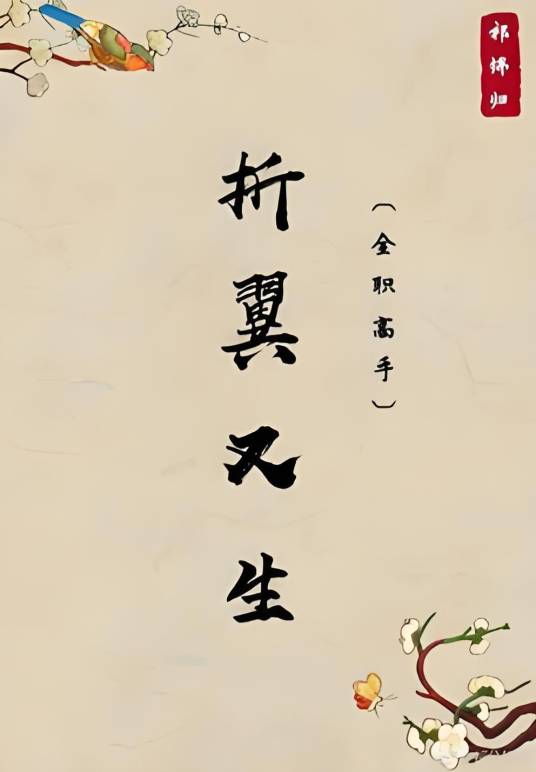 祁锦归
〔全职高手〕
折翼又生